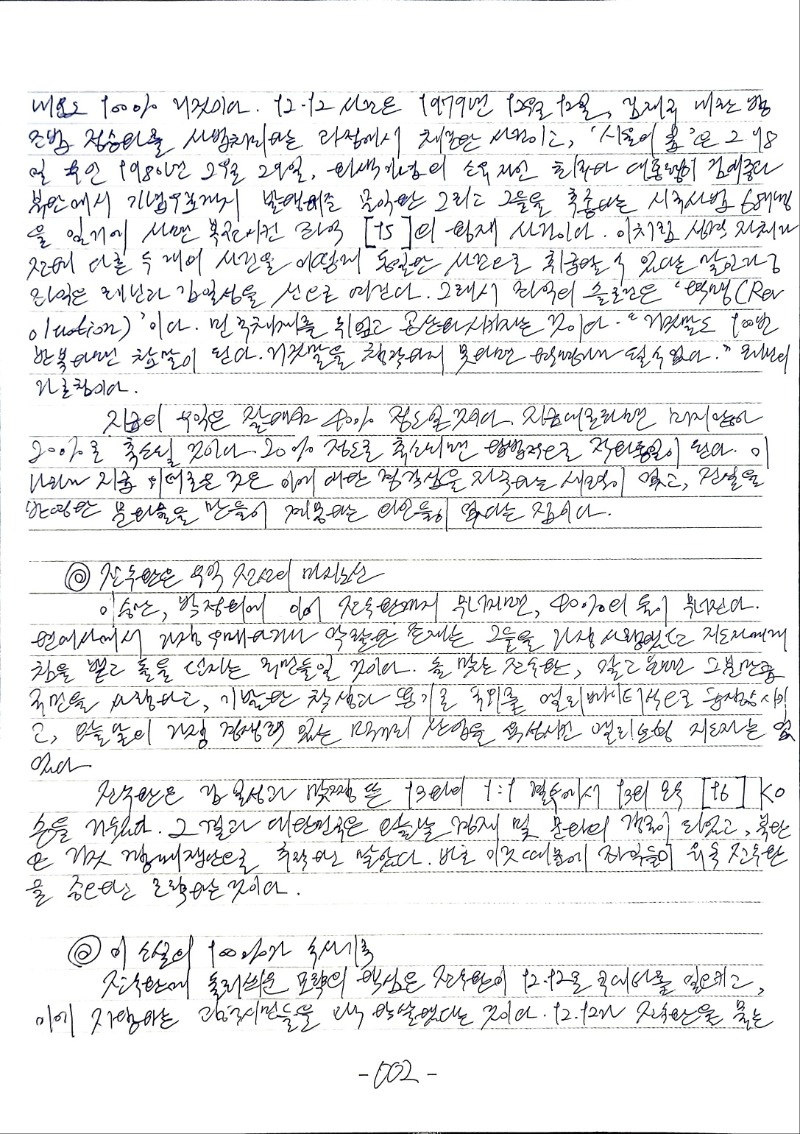 내용도 100% 거짓이다. 12·12 사건은 1979년 12월 12일, 김재규 내란 방
조범 정승화를 사법처리하는 과정에서 체포한 사건이고, '서울의 봄'은 그 78
일 후인 1980년 2월 29일, 의 소유자인 최규하 대통령이 김대중과
북한에서 기념우표까지 발행해준 윤이상 그리고 그들을 추종하는 시국사범 687명
을 일거에 사면 복권시킨 좌익 [15]의 사건이다. 이처럼 성격 자체가
전혀 다른 두 개의 사건을 어떻게 동일한 사건으로 취급할 수 있다는 말인가?
좌익은 레닌과 김일성을 신으로 여긴다. 그래서 좌익의 슬로건은 '혁명(Rev
olution)'이다. 민주체제를 뒤엎고 공산화시키자는 것이다. "거짓말도 100번
반복하면 참말이 된다. 거짓말을 창작하지 못하면 혁명가가 될 수 없다." 레닌의
가르침이다.
지금의 우익은 잘해야 40% 정도일 것이다. 지금대로라면 머지않아
20%로 축소될 것이다. 20% 정도로 축소되면 합법적으로 적화통일이 된다. 이
나라가 지금 위태로운 것은 이에 대한 경각심을 자극하는 세력이 없고, 진실을
반영한 문화물을 만들어 제공하는 위인들이 없다는 점이다.
◎ 전두환은 우익 전선의 마지노선
이승만, 박정희에 이어 전두환까지 무너지면, 40%의 둑이 무너진다.
현대사에서 가장 우매하거나 악랄한 존재는 그들을 가장 사랑했던 지도자에게
침을 뱉고 돌을 던지는 국민들일 것이다. 돌 맞는 전두환, 알고 보면 그분만큼
국민을 사랑하고, 기발한 착상과 용기로 국위를 엘리베이터식으로 상승시키
고, 오늘날의 가장 경쟁력 있는 먹거리 산업을 육성시킨 엘리트형 지도자는 없
었다.
전두환은 김일성과 맞짱 뜬 13회의 1:1 결투에서 13회 모두 [16] KO
승을 거두었다. 그 결과 대한민국은 오늘날 경제 및 문화의 강국이 되었고, 북한
은 거짓 강대국으로 추락하고 말았다. 바로 이것 때문에 좌익들이 유독 전두환
을 증오하고 모략하는 것이다.
◎ 이 소설의 100%가 역사기록
전두환에 둘러씌운 모략의 핵심은 전두환이 12.12로 쿠데타를 일으키고,
이에 저항하는 광주시민들을 학살했다는 것이다. 12.12가 전두환을 무는
-002-